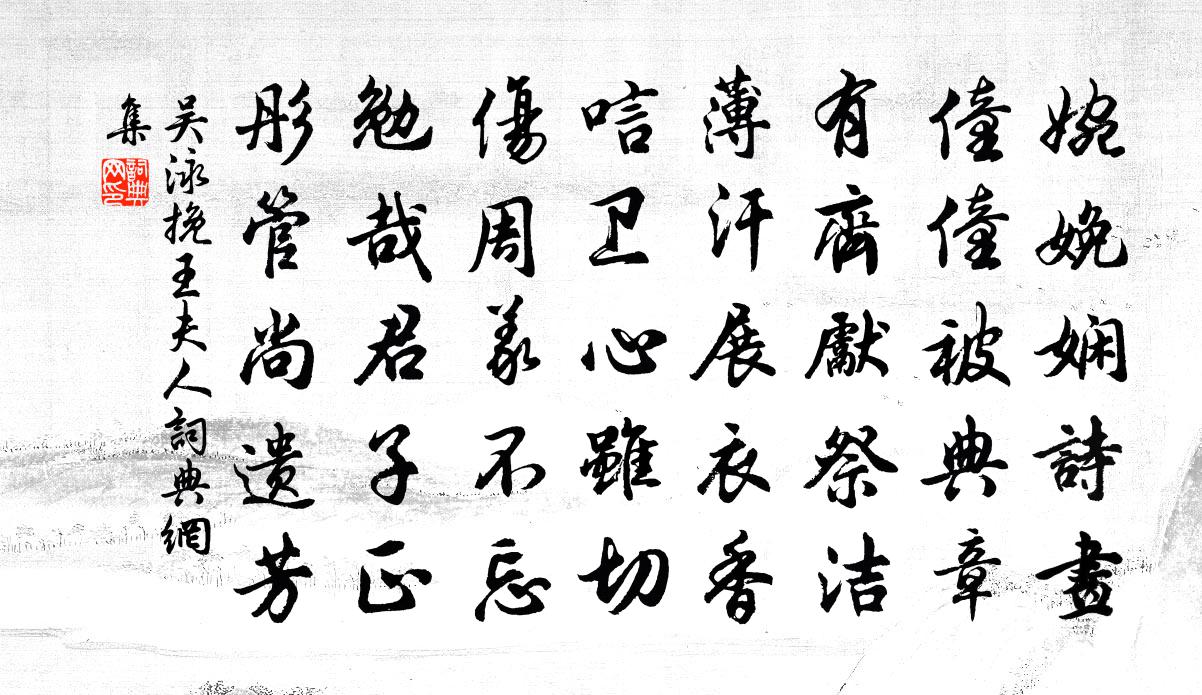 婉娩娴詩畫
僮僮被典章
有齊獻祭洁
薄汗展衣香
唁卫心雖切
傷周義不忘
勉哉君子正
彤管尚遗芳
吴泳挽王夫人詞典網
集
詞典
网印